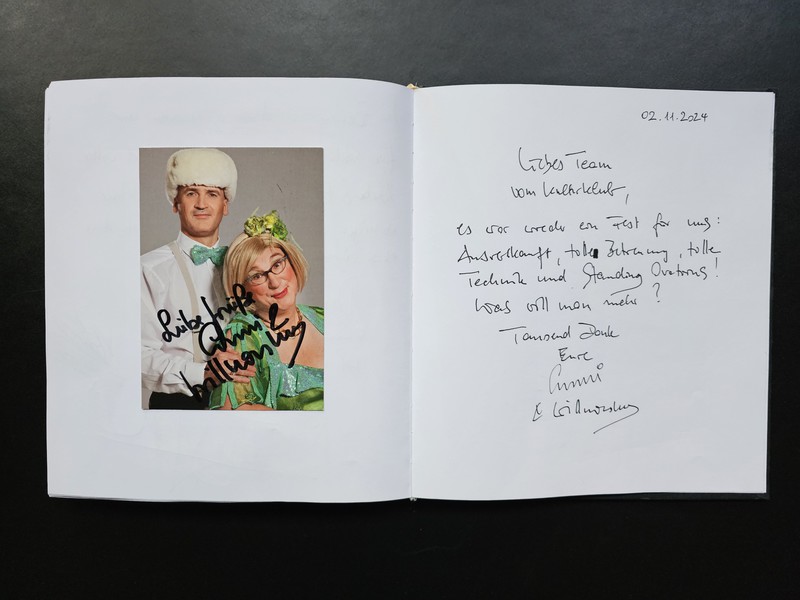 Liebe Grüße
&
Willnowsky
02.11.2024
Liebes Team
vom Kulturklub,
es war wieder ein Fest für uns:
Ausverkauft, tolle Betreuung, tolle
Technik und Standing Ovations!
Was will man mehr?
Tausend Dank
Eure
Emmi
& Willnowsky